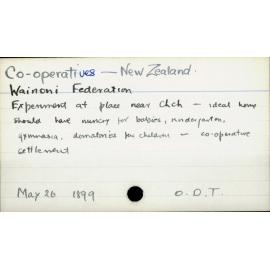 Co-operatives — New Zealand.
Wainoni Federation
Experiment at place near Chch — ideal home
should have nursery for babies, kindergarten,
gymnasia, dormatories for children — co-operative
settlement
May 26 1899 O.D.T.